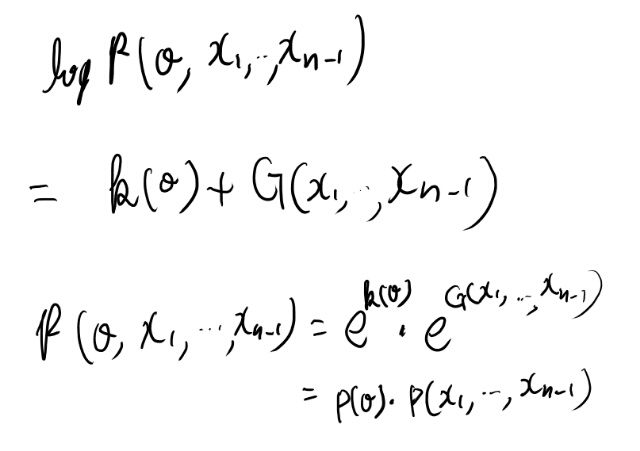 log P(θ, x₁, .., xₙ₋₁)
= k(θ) + G(x₁, .., xₙ₋₁)
P(θ, x₁, ..., xₙ₋₁) = e^{k(θ)} · e^{G(x₁, .., xₙ₋₁)}
= p(θ) · p(x₁, .., xₙ₋₁)